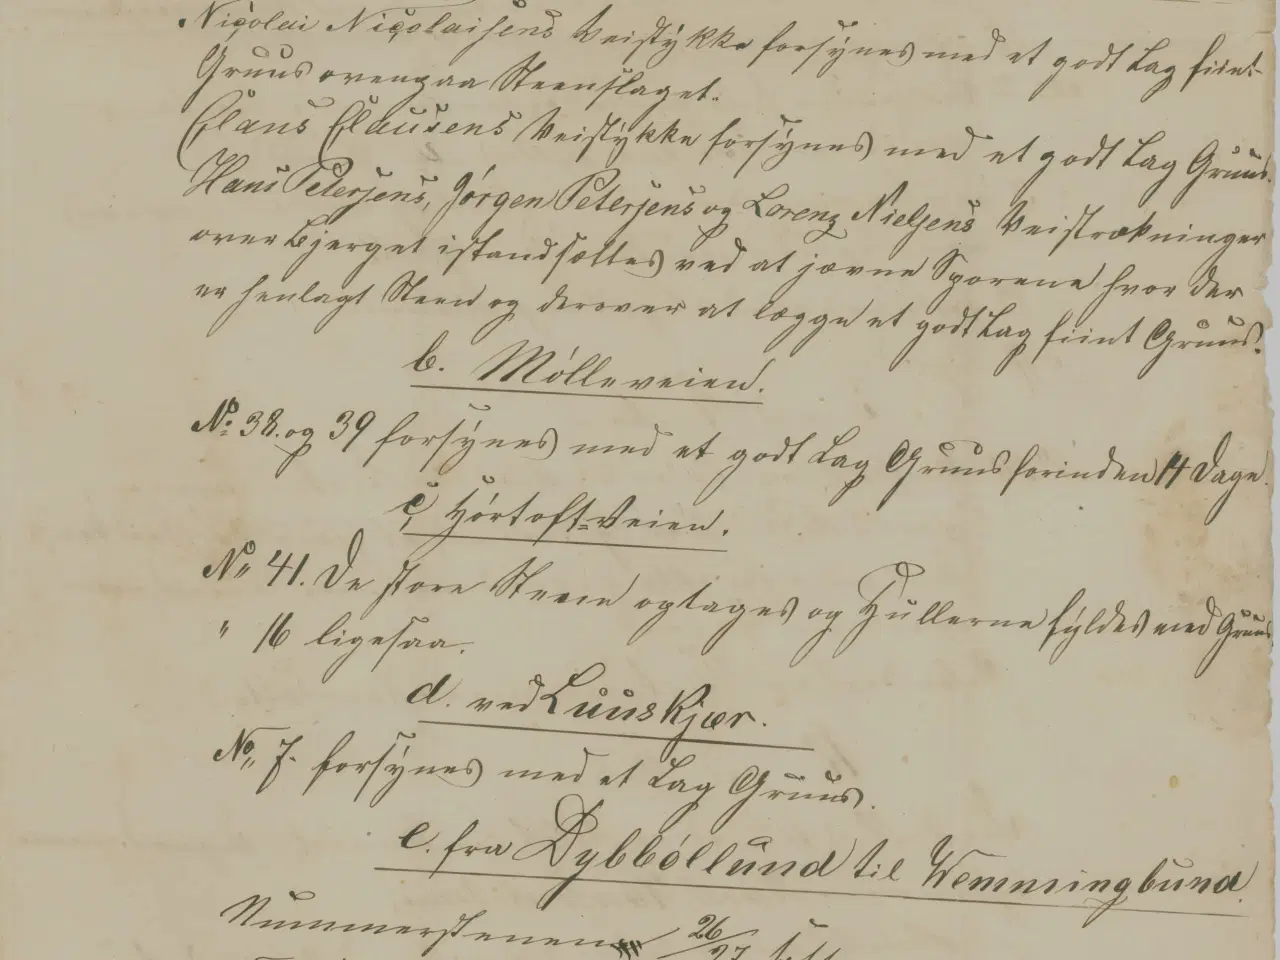 Nicolai Nicolaisens Veistykke forsynes med et godt Lag fiint
Gruus ovenpaa Steenslaget.
Claus Clausens Veistykke forsynes med et godt Lag Gruus.
Hans Petersens, Jørgen Petersens og Lorenz Nielsens Veistrækninger
over Bjerget istandsættes ved at jævne Sporene hvor der
er henlagt Steen og derover at lægge et godt Lag fiint Gruus.
b. Mølleveien.
No. 38. og 39 forsynes med et godt Lag Gruus forinden 14 Dage.
c, Hørtoft=Veien.
No 41. De store Steen optages og Hullerne fyldes med Gruus
" 16 ligesaa.
d. ved Luuskjær.
No, 7. forsynes med et Lag Gruus.
e. fra Dybbøllund til Wemmingbund.
Nummerstenene 26/27